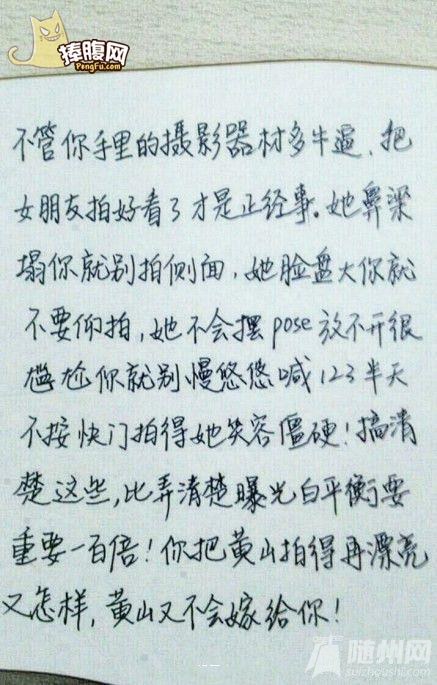 捧腹网
PengFu.com
不管你手里的摄影器材多牛逼，把
女朋友拍好看了才是正经事。她鼻梁
塌你就别拍侧面，她脸盘大你就
不要仰拍，她不会摆pose放不开很
尴尬你就别慢悠悠喊123半天
不按快门拍得她笑容僵硬！搞清
楚这些，比弄清楚曝光白平衡要
重要一百倍！你把黄山拍得再漂亮
又怎样，黄山又不会嫁给你！
随州网